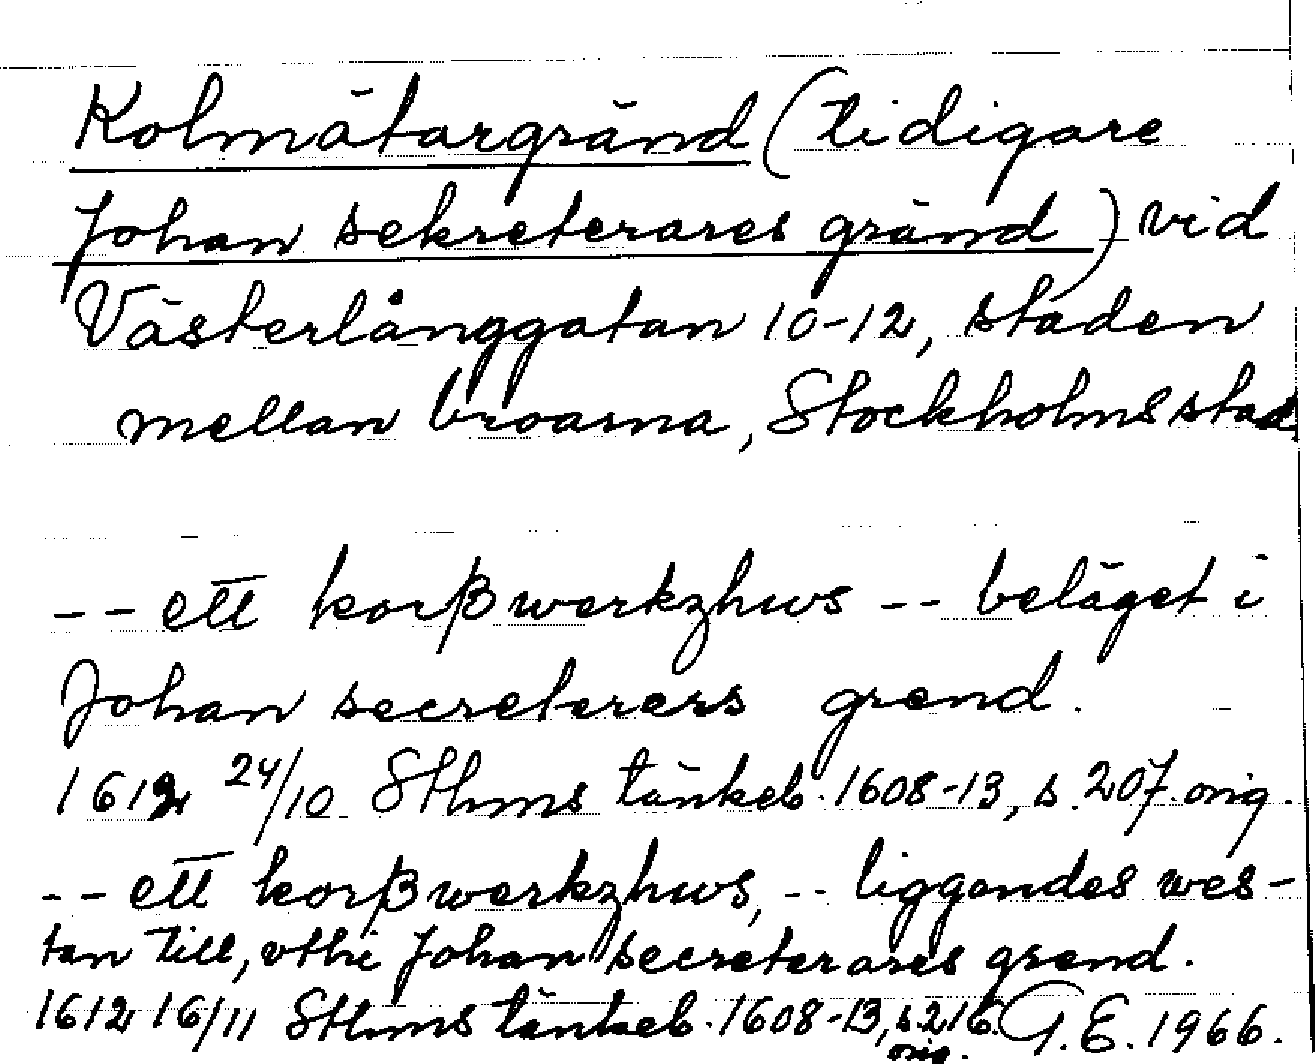 Kolmätargränd (tidigare
Johan sekreterares gränd) vid
Västerlånggatan 10-12, staden
mellan broarna, Stockholms stad.
-- ett korßwerkzhws -- beläget i
Johan secreterers grend.
1612 24/10 Sthms tänkeb. 1608-13, s. 207. orig.
-- ett korßwerkzhws, -- liggendes wes-
tan till, vthi Johan secreterares grend.
1612 16/11 Sthms tänkeb. 1608-13, s. 216. G.E. 1966.
orig.